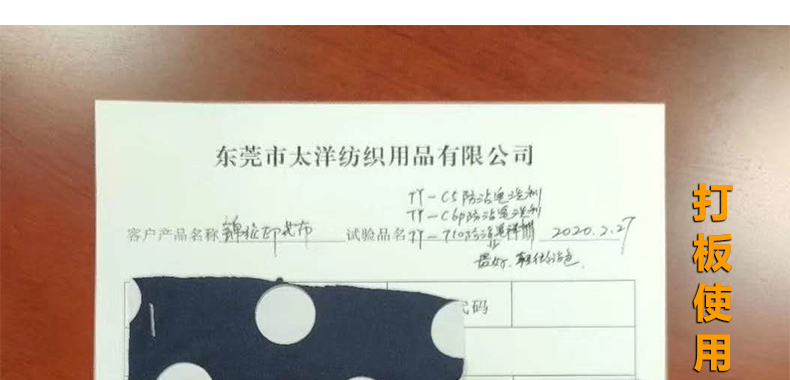 东莞市太洋纺织用品有限公司
TY-C5防沾皂洗剂
TY-C6P防沾皂洗剂
客户产品名称 锦纶印花布 试验品名 TY-710防沾皂洗剂 2020.2.27
最好.
代码
打板使用